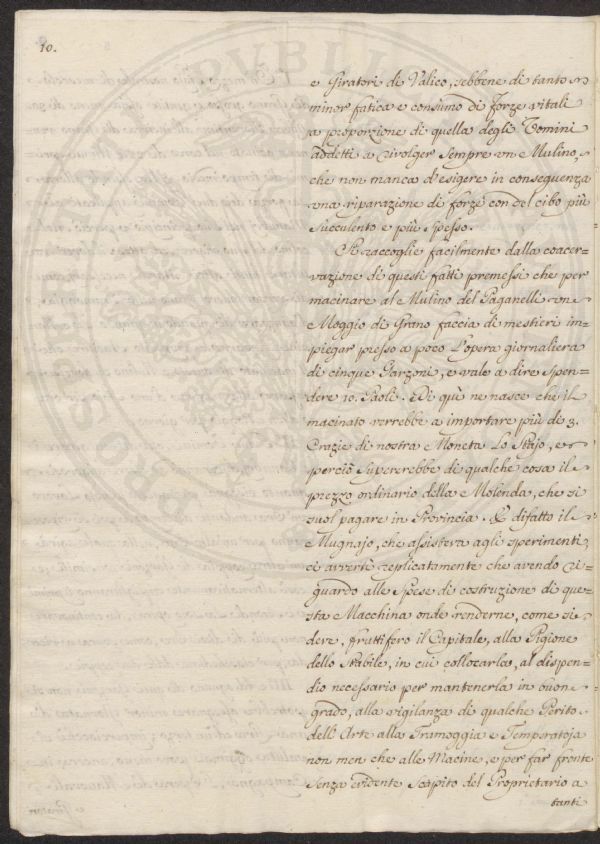 10.
e Giratori di Valico, sebbene di tanto
minor fatica e consumo di forze vitali
a proporzione di quella degli Uomini
addetti a rivolger sempre un Mulino,
che non manca d'esigere in conseguenza
una riparazione di forze con del cibo più
succulento e più spesso.
Si raccoglie facilmente dalla coacer=
vazione di questi fatti premessi che per
macinare al Mulino del Paganelli un
Moggio di Grano faccia di mestieri im=
piegar presso a poco l'opera giornaliera
di cinque Garzoni, e vale a dire spen=
dere 10. Paoli. Di quì ne nasce che il
macinato verrebbe a importare più di 3.
Crazie di nostra Moneta lo Stajo, e
perciò supererebbe di qualche cosa il
prezzo ordinario della Molenda, che si
suol pagare in Provincia. E difatto il
Mugnajo, che assisteva agli sperimenti,
ci avvertì replicatamente che avendo ri=
guardo alle spese di costruzione di que=
sta Macchina onde renderne, come si
deve, fruttifero il Capitale, alla Pigione
dello Stabile, in cui collocarla, al dispen=
dio necessario per mantenerla in buon
grado, alla vigilanza di qualche Perito
dell'Arte alla Tramoggia e Temperatoja
non men che alle Macine, e per far fronte
senza evidente scapito del Proprietario a
tanti
PRUS PUBLI